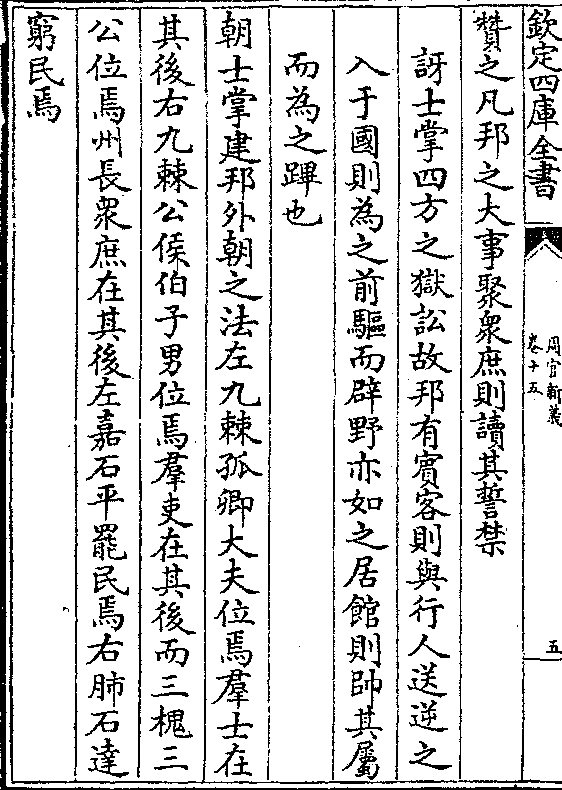 欽定四庫全書
周官新義
卷十五
五
贊之凡邦之大事聚衆庶則讀其誓禁
訝士掌四方之獄訟故邦有賓客則與行人送逆之
入于國則為之前驅而辟野亦如之居館則帥其屬
而為之蹕也
朝士掌建邦外朝之法左九棘孤卿大夫位焉羣士在
其後右九棘公侯伯子男位焉羣吏在其後面三槐三
公位焉州長衆庶在其後左嘉石平罷民焉右肺石達
窮民焉